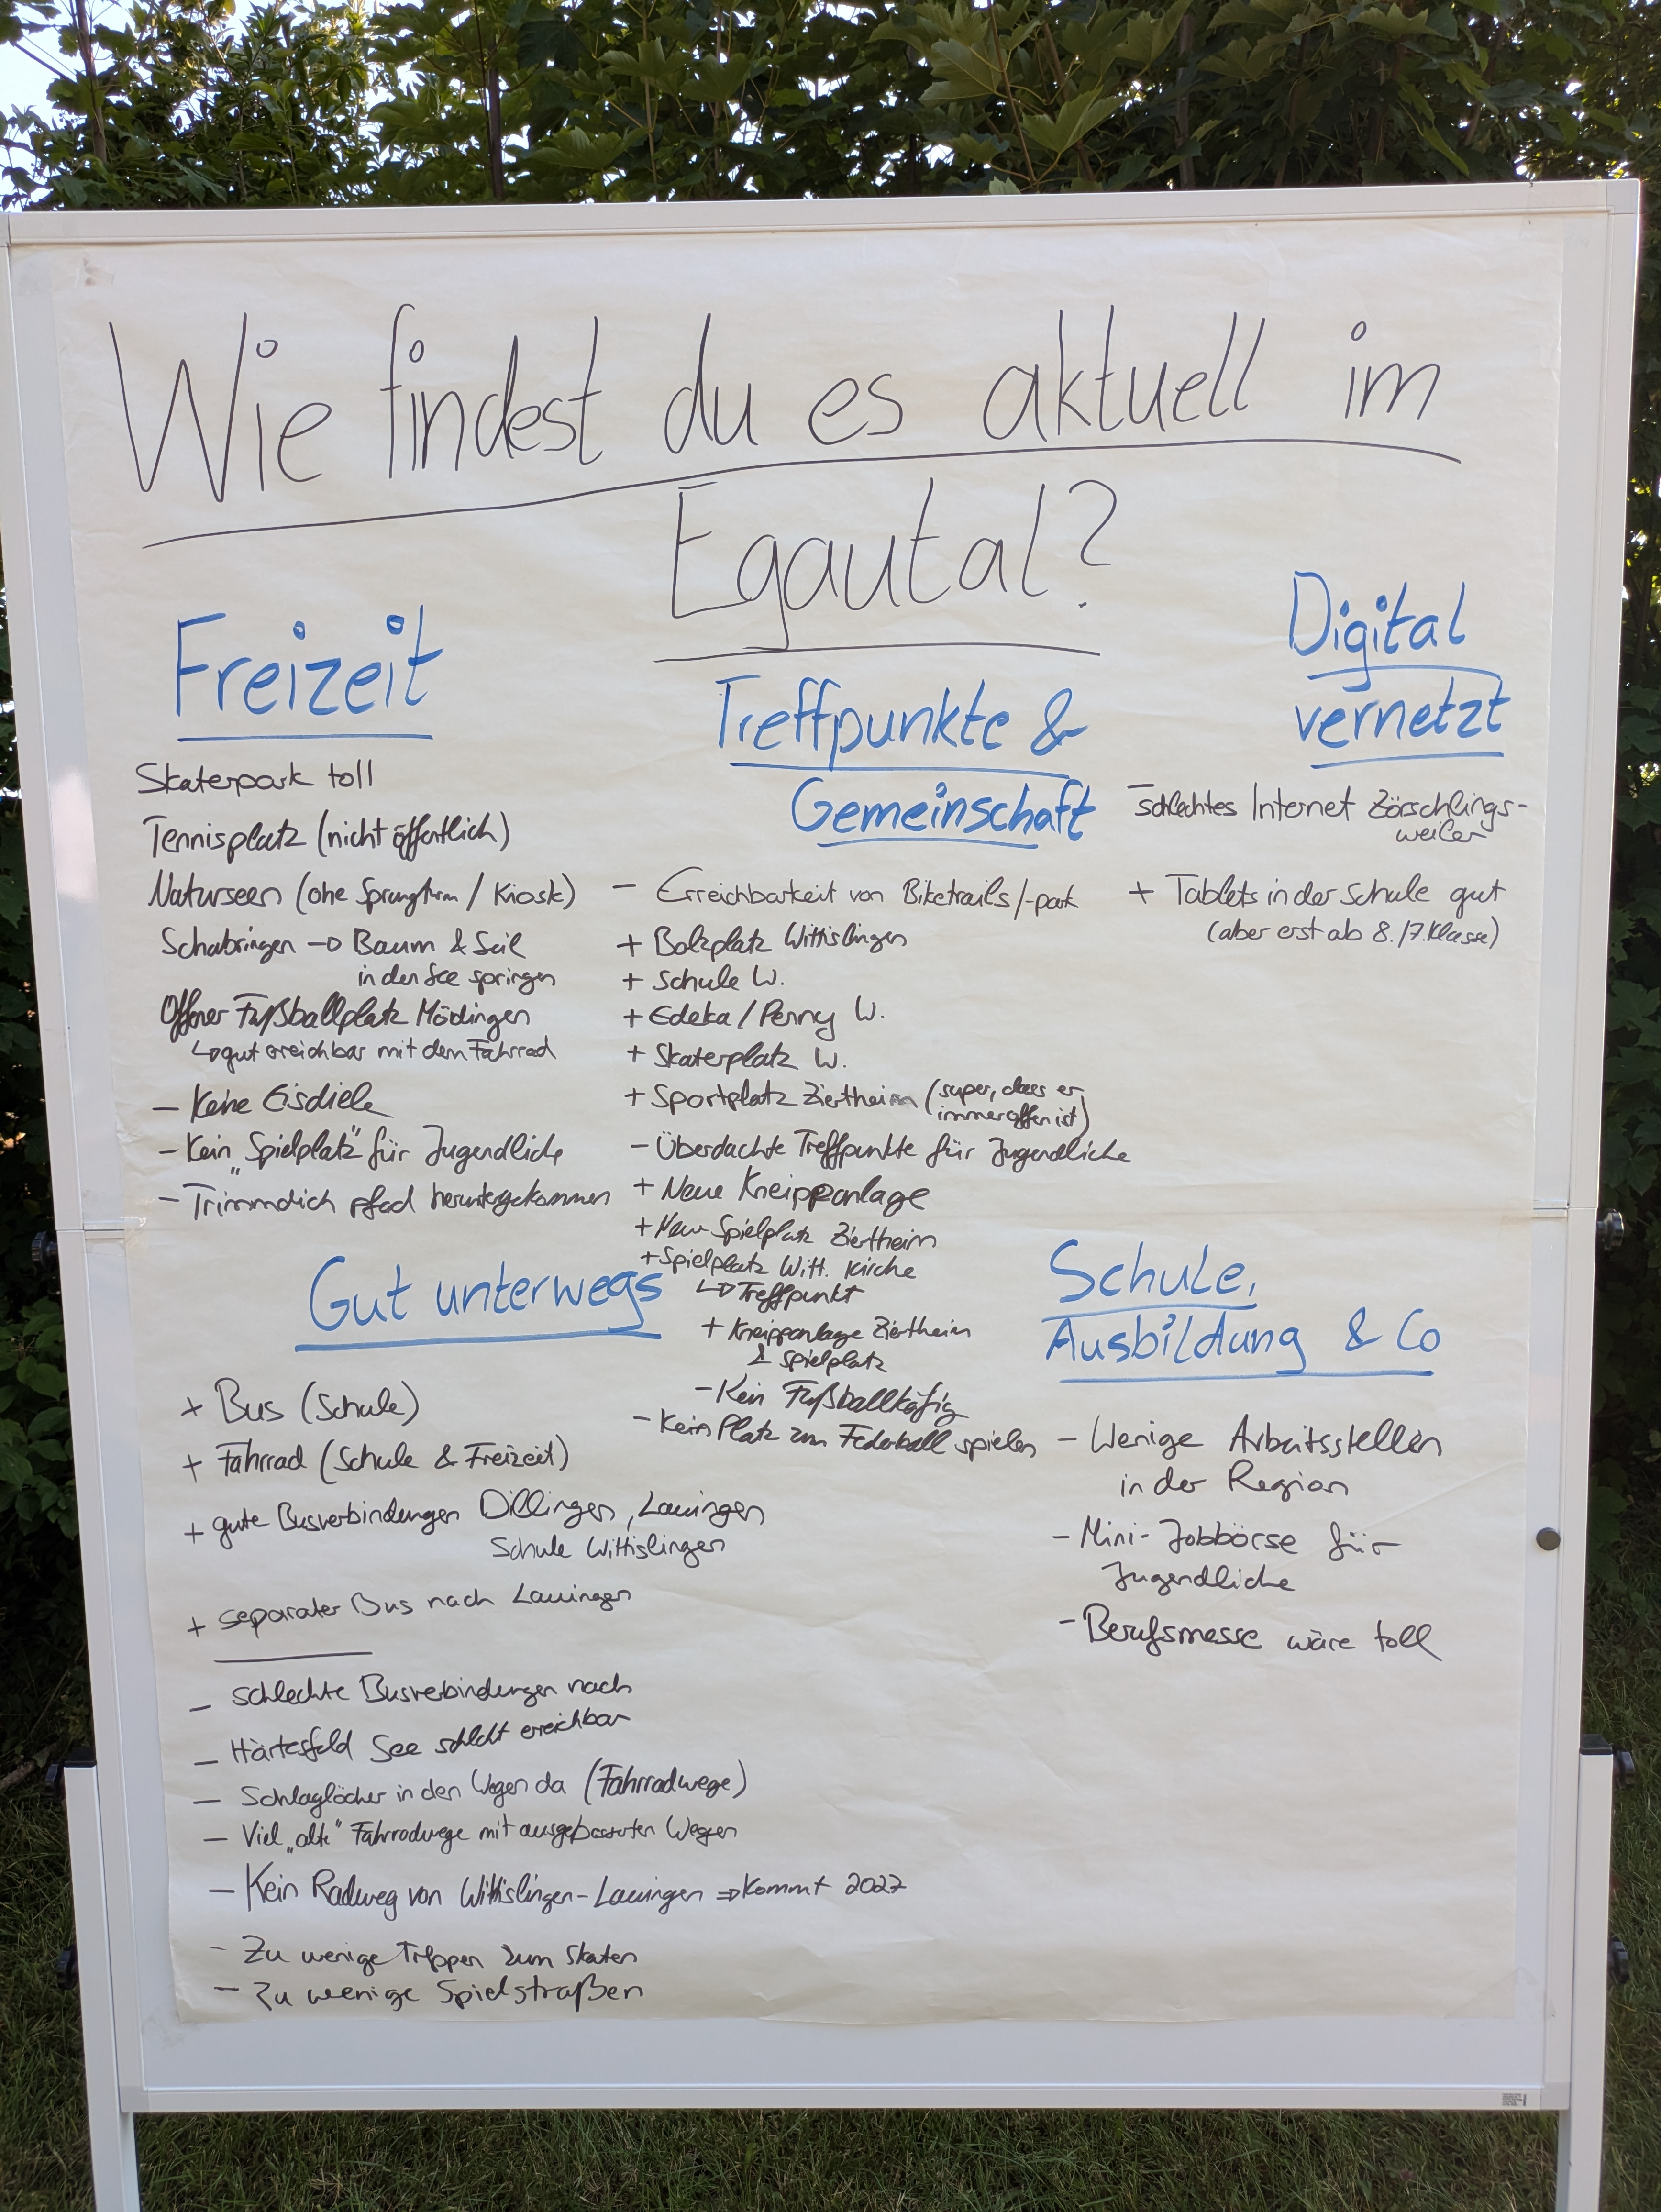 Wie findest du es aktuell im
Egautal?
Freizeit
Skaterpark toll
Tennisplatz (nicht öffentlich)
Naturseen (ohe Sprungturm / Kiosk)
Schabringen → Baum & Seil
in den See springen
Offener Fußballplatz Mödingen
↳ gut erreichbar mit dem Fahrrad
- Keine Eisdiele
- Kein „Spielplatz" für Jugendliche
- Trimmdich pfad heruntergekommen
Treffpunkte &
Gemeinschaft
- Erreichbarkeit von Biketrails/-park
+ Bolzplatz Wittislingen
+ Schule W.
+ Edeka / Penny W.
+ Skaterplatz W.
+ Sportplatz Ziertheim (super, dass er
immer offen ist)
- Überdachte Treffpunkte für Jugendliche
+ Neue Kneippanlage
+ Neuer Spielplatz Ziertheim
+ Spielplatz Witt. Kirche
↳ Treffpunkt
+ Kneippanlage Ziertheim
& Spielplatz
- Kein Fußballkäfig
- Kein Platz zum Federball spielen
Digital
vernetzt
- schlechtes Internet Zöschlings-
weiler
+ Tablets in der Schule gut
(aber erst ab 8./7. Klasse)
Gut unterwegs
+ Bus (Schule)
+ Fahrrad (Schule & Freizeit)
+ gute Busverbindungen Dillingen, Lauingen
Schule Wittislingen
+ separater Bus nach Lauingen
- schlechte Busverbindungen nach
- Härtesfeld See schlecht erreichbar
- Schlaglöcher in den Wegen da (Fahrradwege)
- Viel „alte" Fahrradwege mit ausgebesserten Wegen
- Kein Radweg von Wittislingen-Lauingen ⇒ Kommt 2027
- Zu wenige Treppen zum Skaten
- Zu wenige Spielstraßen
Schule,
Ausbildung & Co
- Wenige Arbeitsstellen
in der Region
- Mini-Jobbörse für
Jugendliche
- Berufsmesse wäre toll